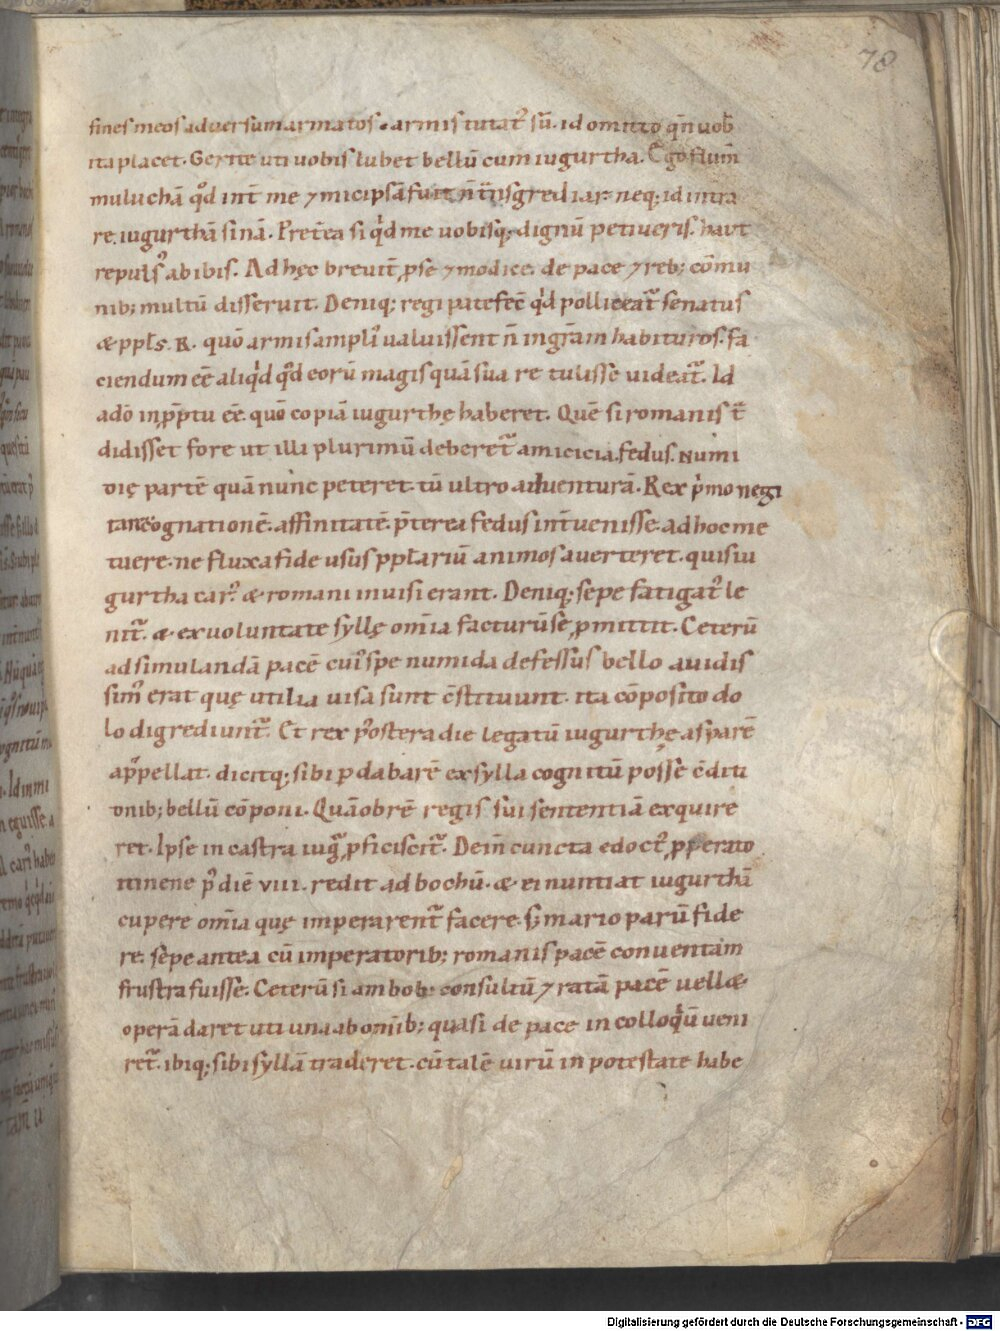 78
fines meos adversum armatos. armis tutat᷒ sū. id omitto qn̄ uob̄
ita placet. Gerite uti uobis lubet bellū cum iugurtha. Ego flum̄
muluchā q͛d int̄ me ⁊ micipsā fuit n̄ t̄nsḡrediar. neq; id intra
re. iugurthā sinā. Pret̄ea si q͛d me uobisq; dignū petiueris. haut
repuls᷒ abibis. Ad hęc breuit̄ ꝓ se ⁊ modice. de pace ⁊ reb; cōmu
nib; multū disseruit. Deniq; regi patefec̄ q͛d polliceat᷒ senatus
& ppl̄s. R. quō armis ampli᷒ ualuissent n̄ in gr̄am habituros. fa
ciendum eē aliq͛d q͛d eorū magis quā sua retulisse uideat᷒. Id
adō in ꝓptu eē. quō copiā iugurthę haberet. Quē si romanis t̄
didisset fore ut illi plurimū deberet᷒ amicicia. fedus. Numi
dię partē quā nunc peteret. tū ultro aduenturā. Rex p͛mo negi
tare cognationē. affinitatē. p̄terea fedus int̄uenisse. ad hoc me
tuere. ne fluxa fide usus pplariū animos auerteret. quis iu
gurtha car᷒ & romani inuisi erant. Deniq; sepe fatigat᷒ le
nit᷒. & ex uoluntate syllę om̄ia facturū se ꝓmittit. Ceterū
ad simulandā pacē cui᷒ spe numida defessus bello auidis
sim᷒ erat quę utilia uisa sunt c̄stituunt. ita cōposito do
lo digrediunt᷒. Et rex p᷒ostera die legatū iugurthę asparē
appellat. dicitq; sibi p dabarē ex sylla cognitū posse c̄diti
onib; bellū cōponi. Quāobrē regis sui sententiā exquire
ret. Ipse in castra iug᷒ ꝓficiscit᷒. Dein̄ cuncta edoct᷒ ꝓperato
itinene p᷒ diē viii. redit ad bochū. & ei nuntiat iugurthā
cupere om̄ia quę imperarent᷒ facere. s; mario parū fide
re. sepe antea cū imperatorib; romanis pacē conuentam
frustra fuisse. Ceterū si ambob; consultū ⁊ ratā pacē uell&
operā daret uti una ab om̄ib; quasi de pace in colloq͛ū ueni
ret᷒. ibiq; sibi syllā traderet. cū talē uirū in potestate habe
Digitalisierung gefördert durch die Deutsche Forschungsgemeinschaft - DFG